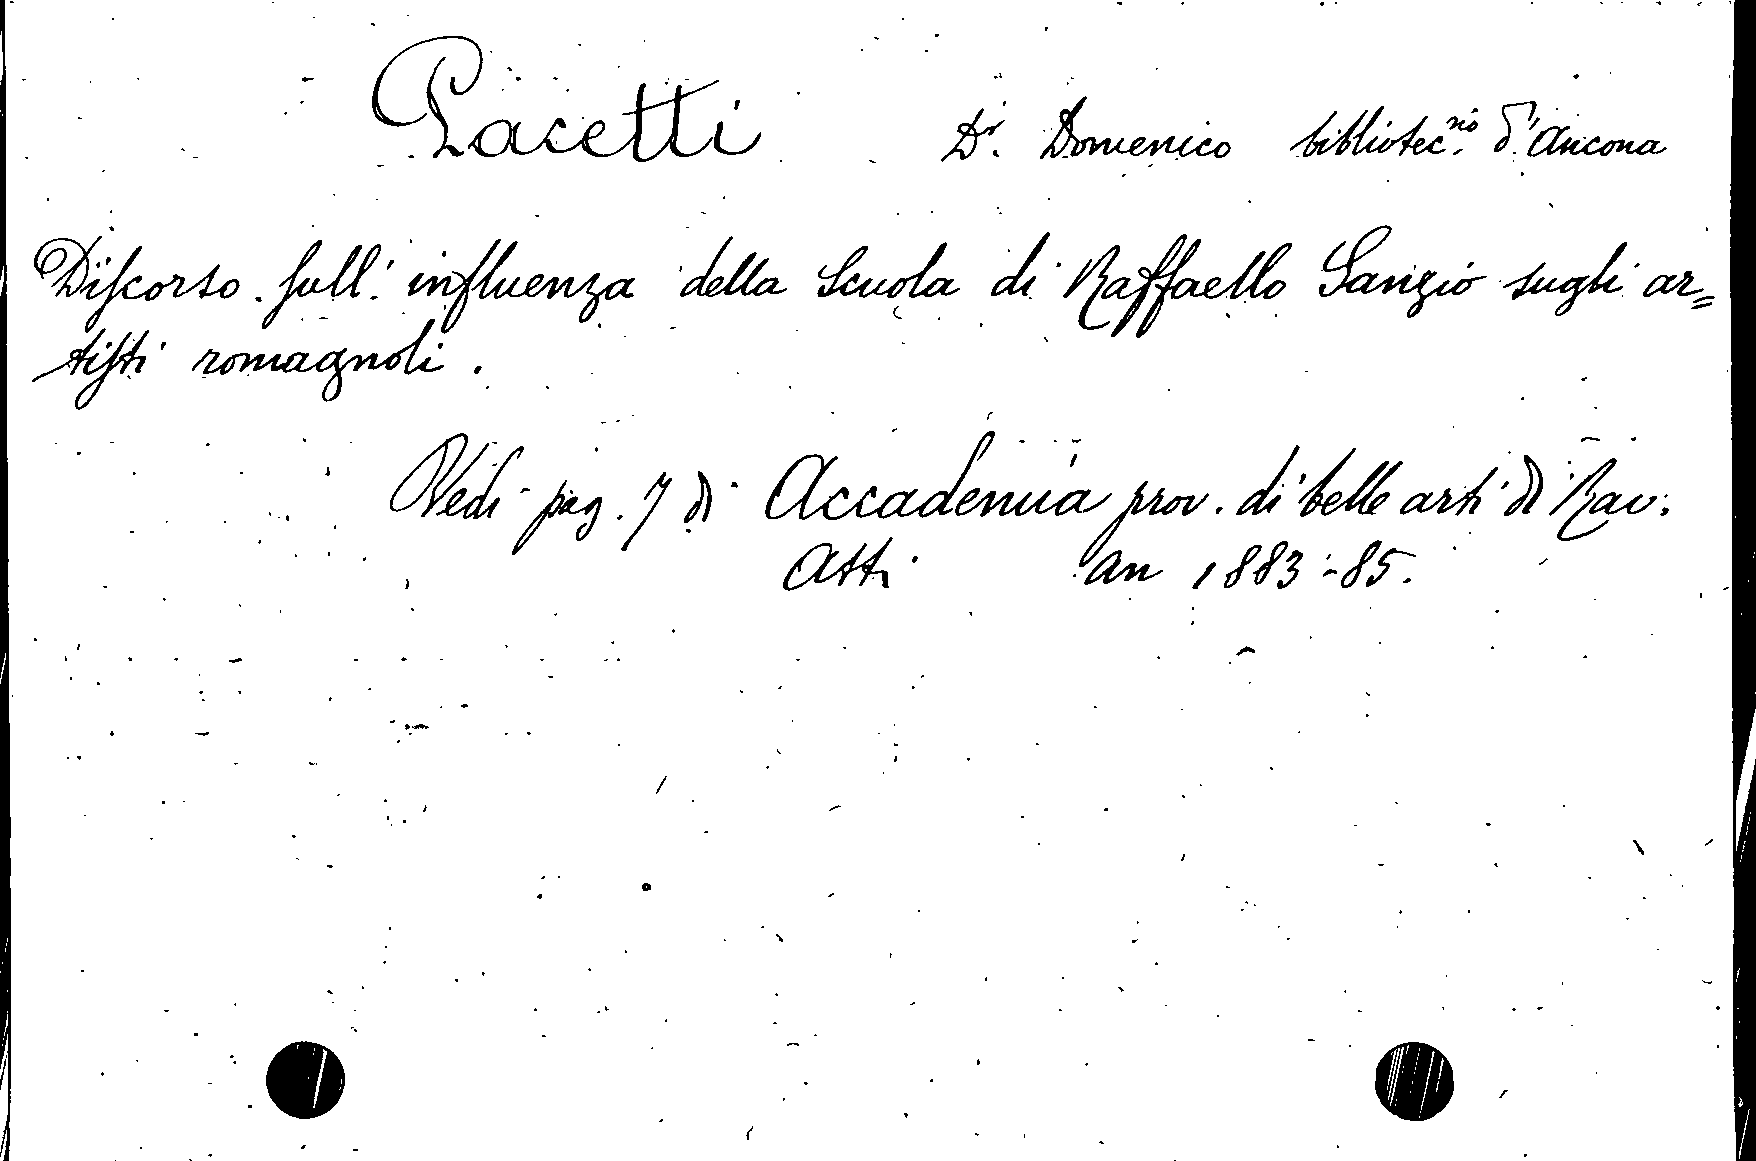 Pacetti Dr. Domenico bibliotec.rio d'Ancona
Discorso sull' influenza della Scuola di Raffaello Sanzio sugli ar=
tisti romagnoli.
Vedi pag. 7 di Accademia prov. di belle arti di Rav.
Atti an 1883-85.